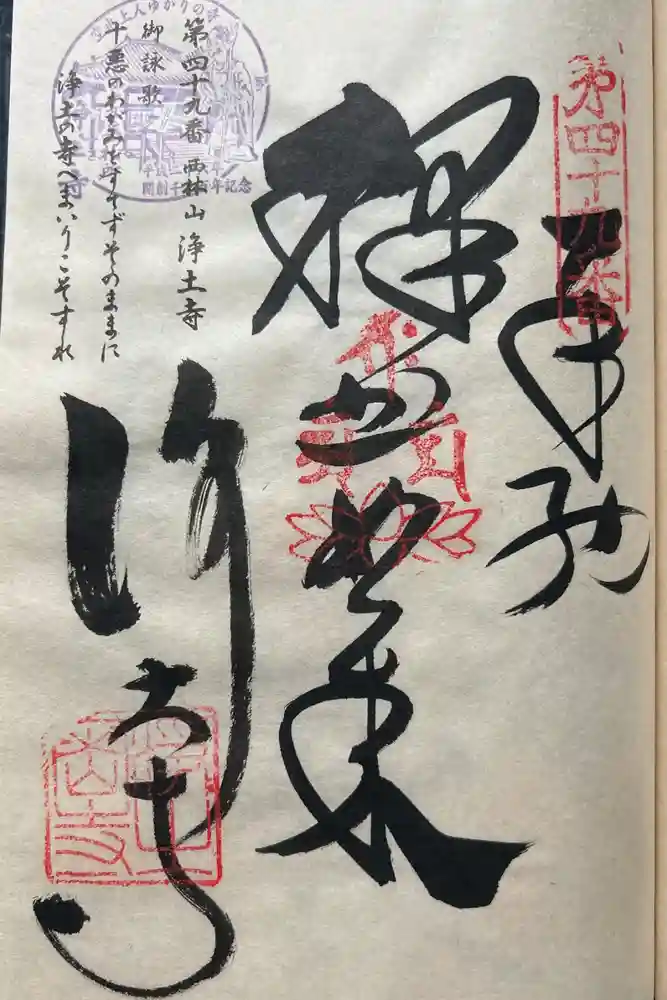 第四十九番
奉納
釋迦如来
浄土寺
第四十九番 西林山 浄土寺
御詠歌
十悪のわがみを すてずそのままに
浄土の寺へまいりこそすれ
上人ゆかりの
開創千二百年記念